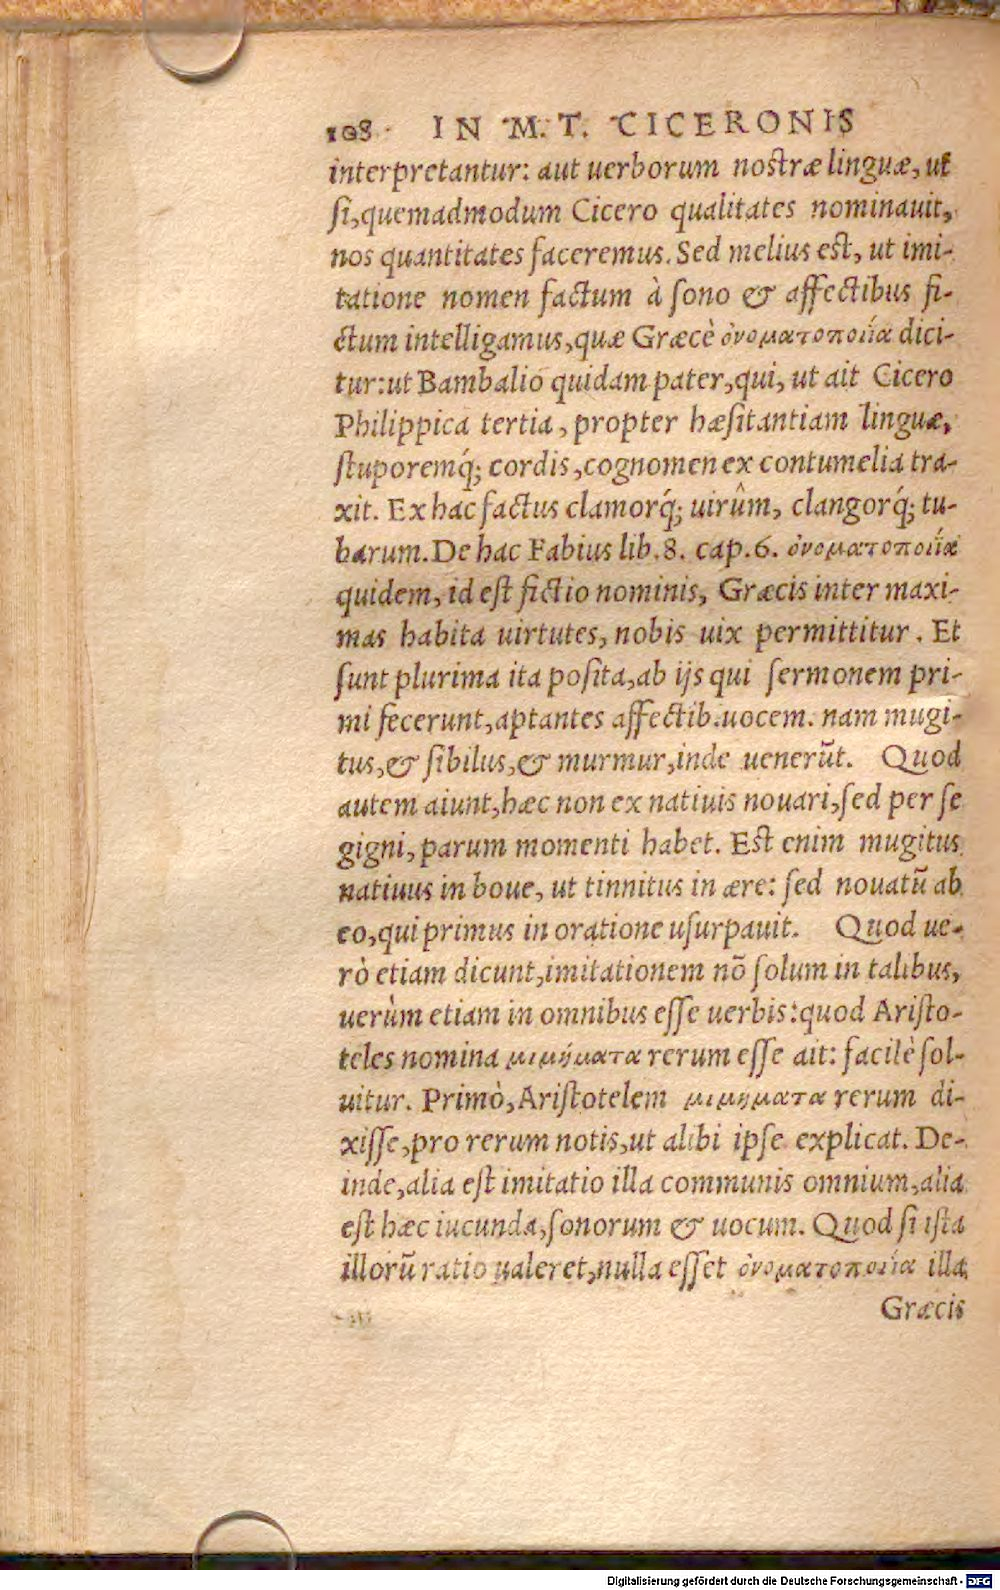 108 IN M. T. CICERONIS
interpretantur: aut uerborum nostræ linguæ, ut
si, quemadmodum Cicero qualitates nominauit,
nos quantitates faceremus. Sed melius est, ut imi-
tatione nomen factum à sono & affectibus fi-
ctum intelligamus, quæ Græcè ὀνοματοποιΐα dici-
tur: ut Bambalio quidam pater, qui, ut ait Cicero
Philippica tertia, propter hæsitantiam linguæ,
stuporemq́; cordis, cognomen ex contumelia tra-
xit. Ex hac factus clamorq́; uirûm, clangorq́; tu-
barum. De hac Fabius lib. 8. cap. 6. ὀνοματοποιΐα
quidem, id est fictio nominis, Græcis inter maxi-
mas habita uirtutes, nobis uix permittitur. Et
sunt plurima ita posita, ab ijs qui sermonem pri-
mi fecerunt, aptantes affectib. uocem. nam mugi-
tus, & sibilus, & murmur, inde uenerūt. Quod
autem aiunt, hæc non ex natiuis nouari, sed per se
gigni, parum momenti habet. Est enim mugitus
natiuus in boue, ut tinnitus in ære: sed nouatū ab
eo, qui primus in oratione usurpauit. Quod ue-
rò etiam dicunt, imitationem nō solum in talibus,
uerùm etiam in omnibus esse uerbis: quod Aristo-
teles nomina μιμήματα rerum esse ait: facilè sol-
uitur. Primò, Aristotelem μιμηματα rerum di-
xisse, pro rerum notis, ut alibi ipse explicat. De-
inde, alia est imitatio illa communis omnium, alia
est hæc iucunda, sonorum & uocum. Quod si ista
illorū ratio ualeret, nulla esset ὀνοματοποιΐα illa
Græcis
Digitalisierung gefördert durch die Deutsche Forschungsgemeinschaft - DFG